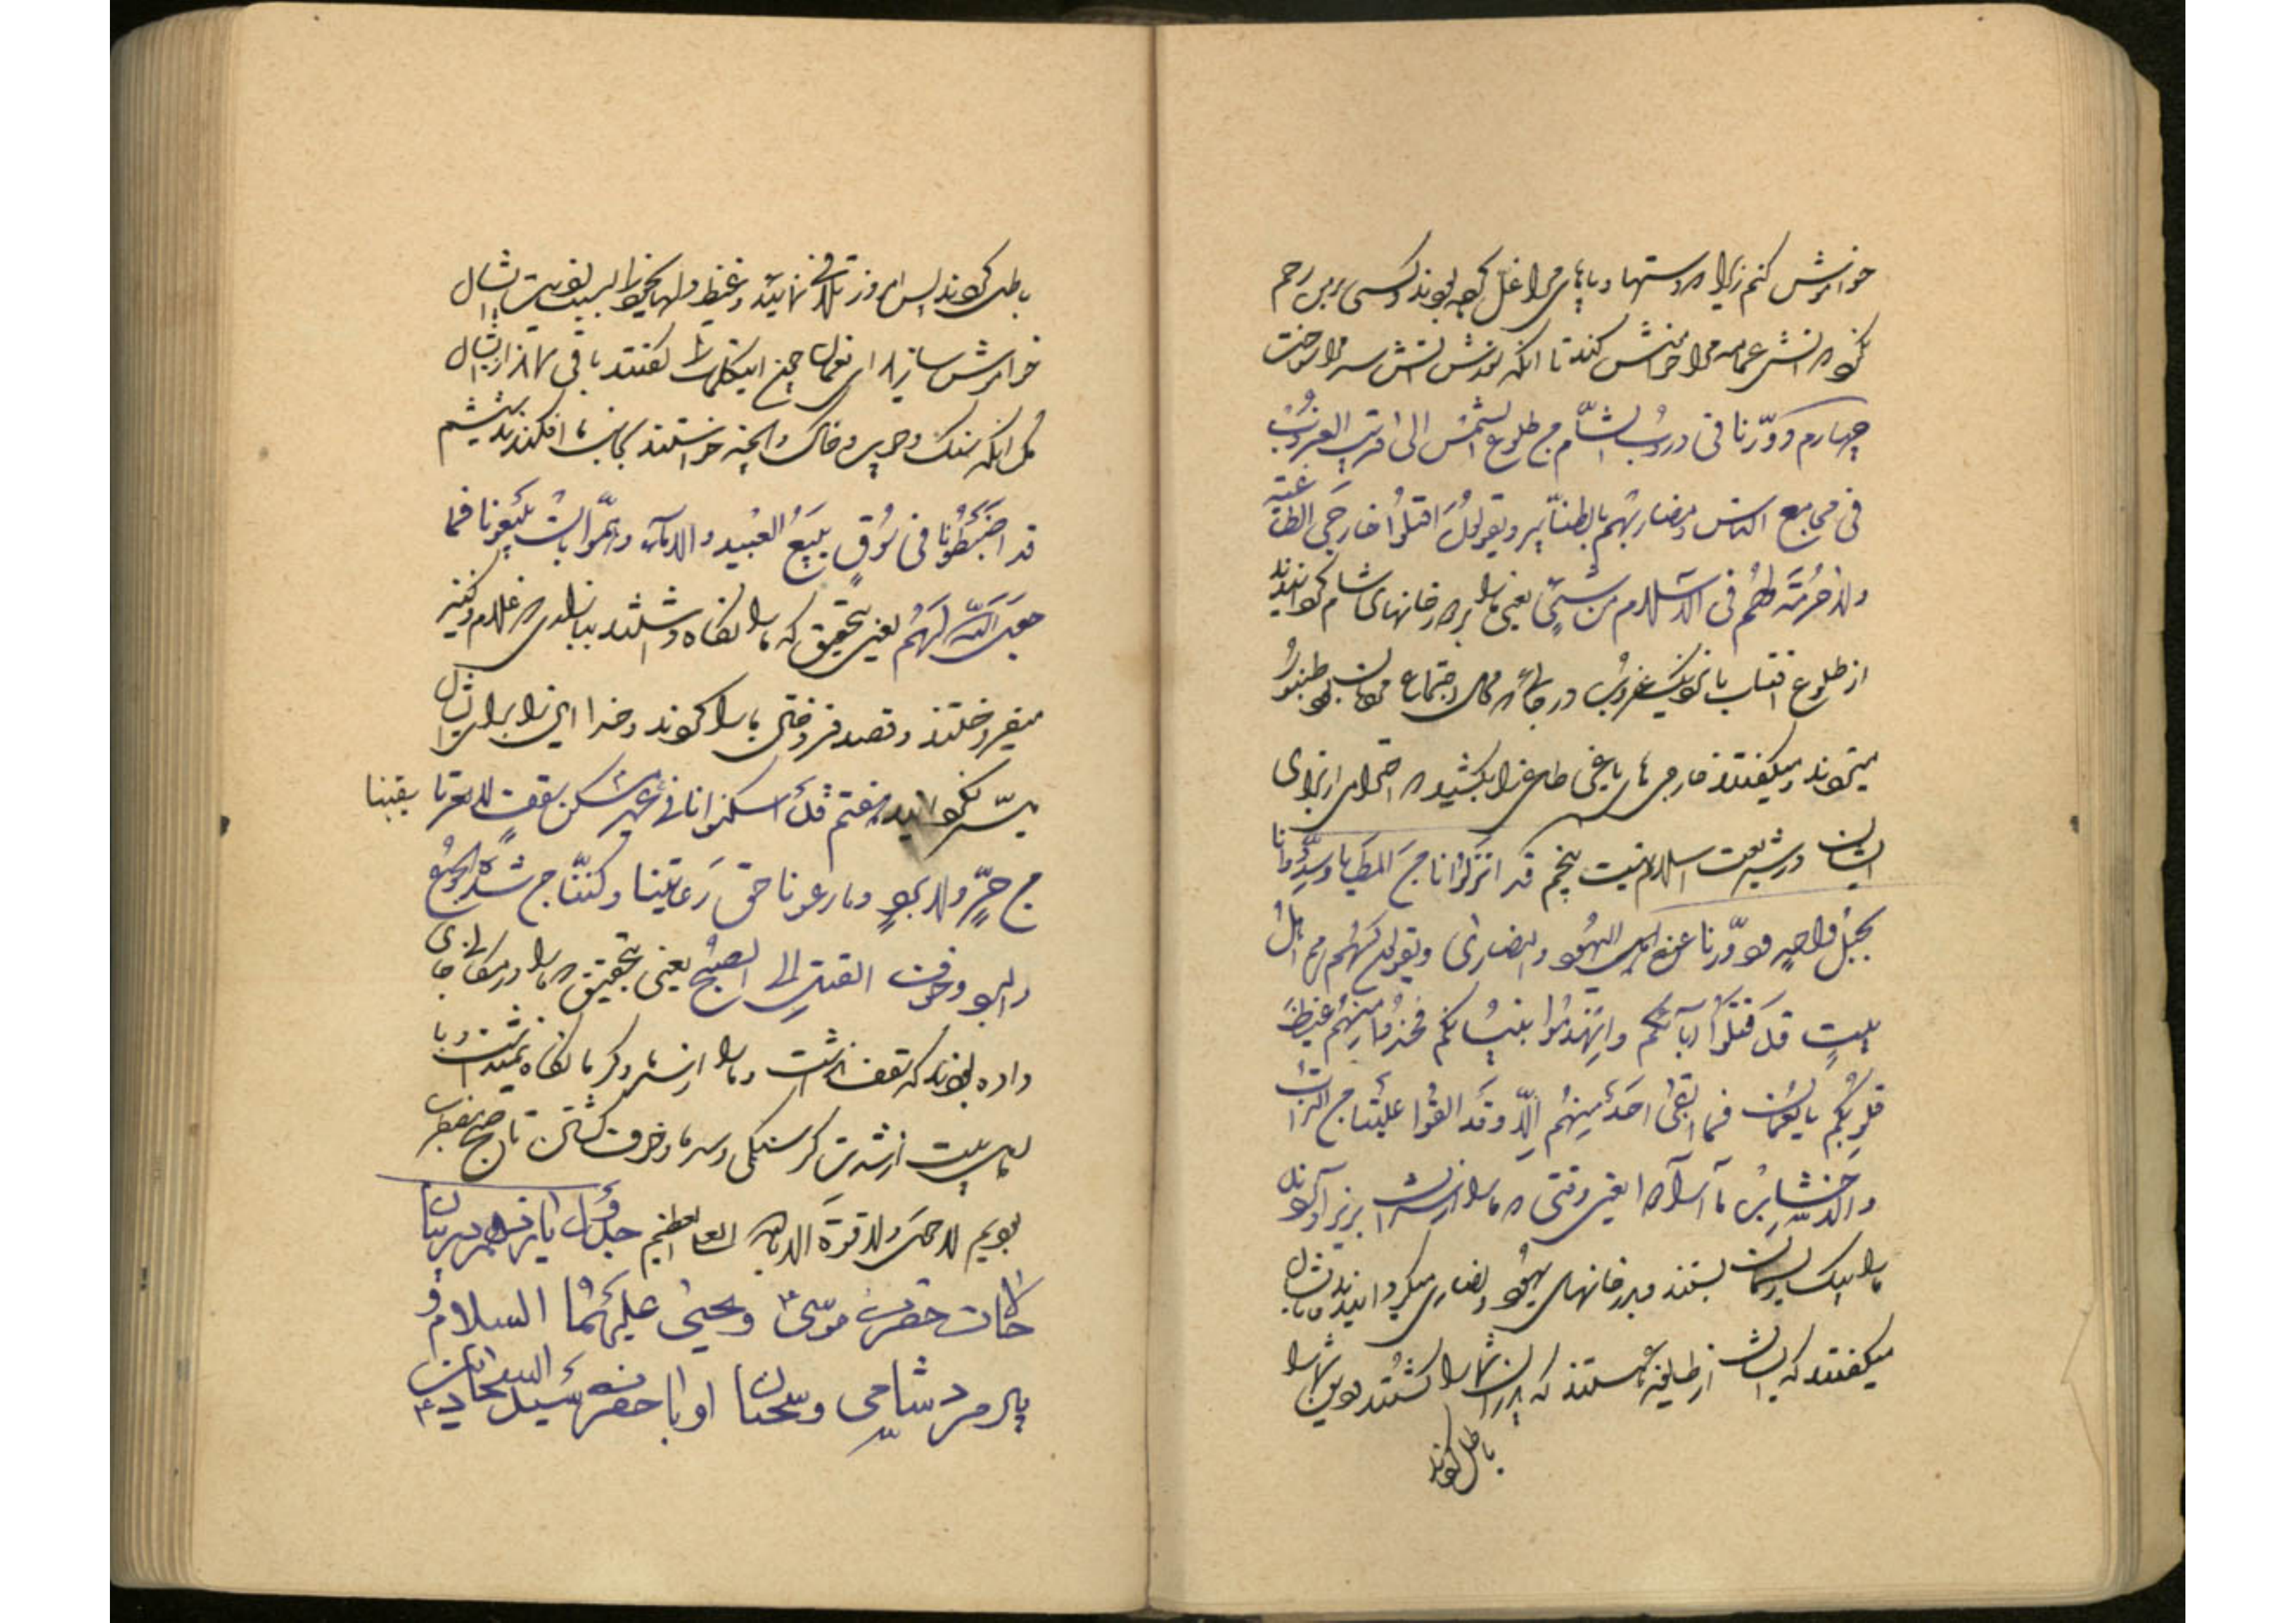 خواموش کنم زیرا که دستها و پاهای مرا غل کرده بودند و کسی بر من رحم
نکرد که آتش عمامه مرا خاموش کند تا آنکه سوزش آتش سر مرا سوخت
چهارم دوّرنا فی دروب الشّام من طلوع الشمس الی اقرب الغروب
فی مجامع الناس و مضاربهم بالطنابیر و یقولون اقتلوا خارجی الطاغیه
ولا حرمة لهم فی الاسلام من شیئ یعنی ما را بدر خانهای شام گردانیدند
از طلوع افتاب تا نزدیک غروب در جائی که محل اجتماع مردمان بود طنبور
میزدند و میگفتند خارجی های باغی طاغی را بکشید که احترامی از برای
ایشان در شریعت اسلام نیست پنجم قد انزلونا من المطایا و شدّونا
بحبل واحد و دوّرنا عند اهل الیهود والنصاری و یقولون لهم من اهل
بیتٍ قد قتلوا ابائکم وانهدموا بنیانکم فخذوا منهم غیظ
قلوبکم یا نعمان فما ابقی احدٌ منهم الّا وقد القوا علینا من التراب
والاخشاب ما اراد یعنی وقتی که ما را از شتران بزیر آوردند
ما را بیک ریسمان بستند و بدر خانهای یهود و نصاری میگردانیدند و بایشان
میگفتند که ایشان از طایفه هستند که پدران شما را کشتند و دین شما را
باطل کردند
باطل کردند پس امروز تلافی نمائید و غیظ دلهای خود را بسبب اذیت ایشان
خواموش سازید ای نعمان چون اینکلمات را گفتند باقی نماند از ایشان
مگر آنکه سنگ و چوب و خاک و آنچه خواستند بجانب ما افکندند ششم
قد اضبطونا فی سُوق یبیع العبید والامآء و همّوا بان یبیعونا فما
جعل الله لهم یعنی بتحقیق که ما را نگاه داشتند ببازاری که غلام و کنیز
میفروختند و قصد فروختن ما را کردند و خدا این را برای ایشان
میسّر نگردانید هفتم قد اسکنوانا فی مسکن سقف لا یقینا
من حرّ ولا برد و ما رعونا حق رعایتنا و کنّا من شدة الجوع
والبرد و خوف القتل الی الصبح یعنی بتحقیق که ما را در مکانی جای
داده بودند که سقف نداشت و ما را از سرما و گرما نگاه نمیداشت و ما
اهل بیت از شدت گرسنگی و سرما و خوف کشتن تا صبح مضطرب
بودیم لا حول ولا قوة الا بالله العلی العظیم
حکایت حضرت موسی و یحیی علیهما السلام و
پیرمرد شامی و سخنان او با حضرت سید الساجدین